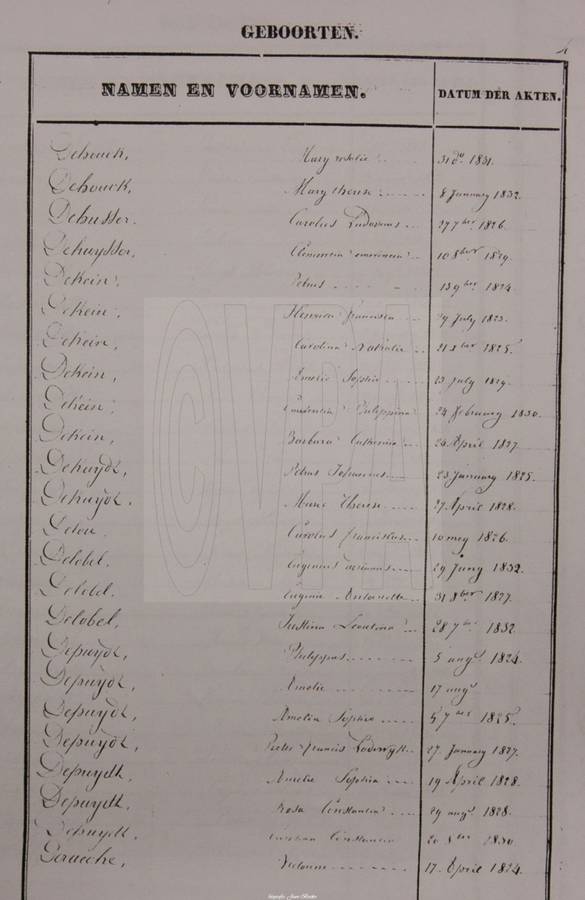 GEBOORTEN.
NAMEN EN VOORNAMEN. DATUM DER AKTEN.
Dehouck, Mary rosalie 1831.
Dehouck, Mary therese 8 January 1832.
Debusser. Carolus Ludovicus 27 7ber 1826.
Dehuysser, Clementia 10 8ber 1829.
DeKein, Petrus 13 9ber 1824.
DeKein, Henrica francisca 29 July 1823.
DeKein, Carolina Nathalie 1825.
DeKein, Emelie Sophie 23 July 1829.
DeKein, Philippina 24 february 1830.
DeKein, Barbara Catharina 24 April 1827.
DeKuydt, Petrus Johannes 23 January 1825.
DeKuydt. Marie Therese 27 April 1828.
Carolus franciskus 10 mey 1826.
Delobel. Eugenius 29 Juny 1832.
Delobel. Eugenie Antoinette 31 8ber 1827.
Delobel, Justina Leontina 28 7ber 1832
Depuydt, Philippus 5 augt 1824.
Depuydt, Amelie 17 augt
Depuydt, Amelia Sophia 5 7ber 1825.
Depuydt, Pieter francis Lodewyk 27. January 1827.
Depuydt, Amelie Sophia 19 April 1828.
Depuydt, Rosa Constantia 29 augt 1828.
Depuydt. Constantin 20 8ber 1830
Victorine 17. April 1824.
©VPA